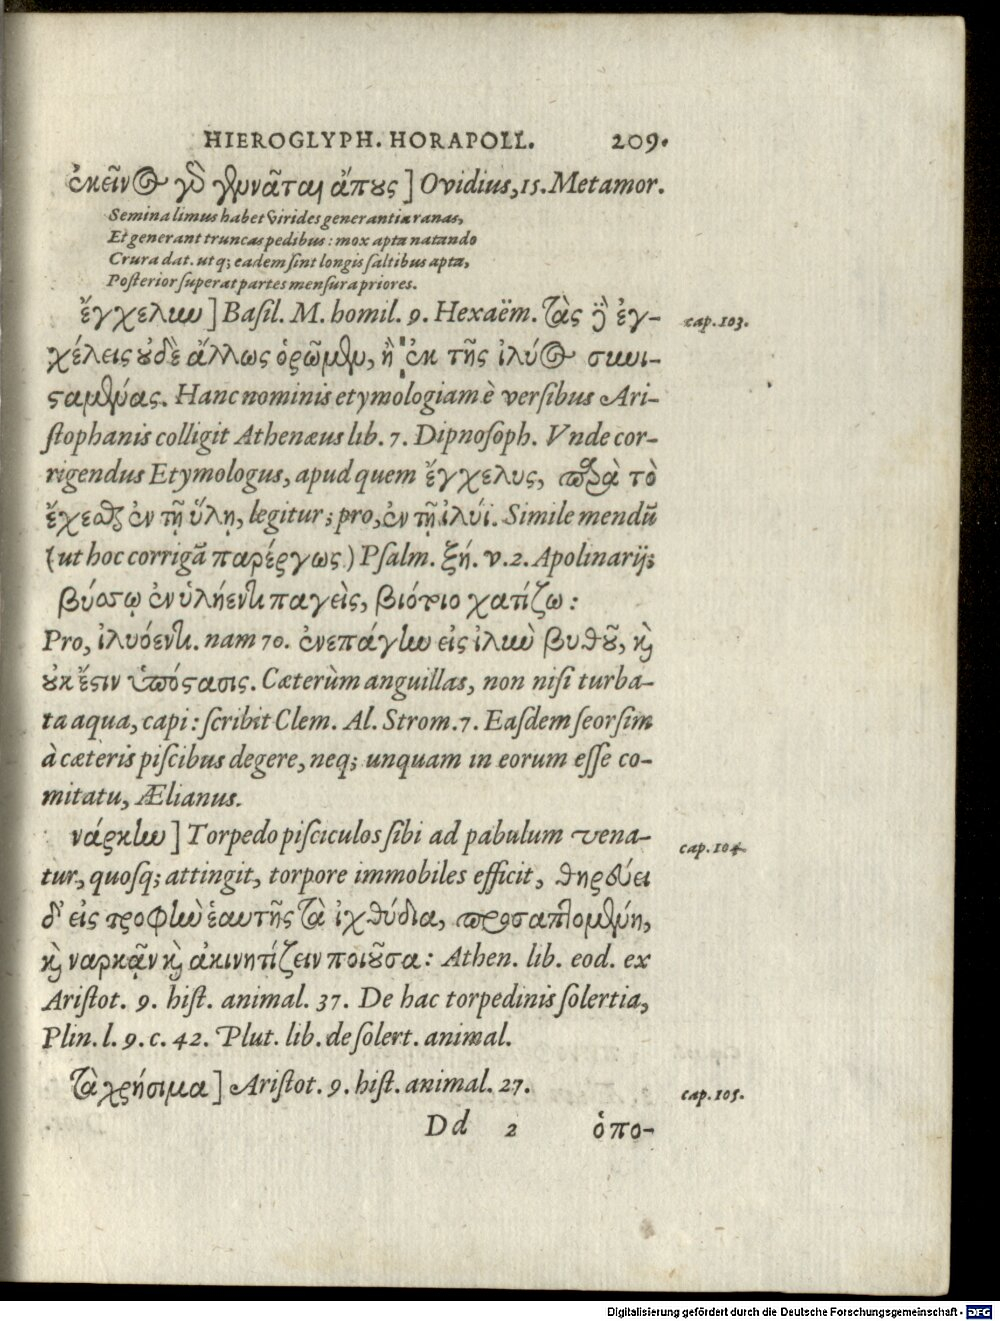 HIEROGLYPH. HORAPOLL. 209.
ἐκεῖνος γὸ γεννᾶται ἄπους] Ovidius, 15. Metamor.
Semina limus habet virides generantia ranas,
Et generant truncas pedibus: mox apta natando
Crura dat. utq; eadem sint longis saltibus apta,
Posterior superat partes mensura priores.
ἔγχελιω] Basil. M. homil. 9. Hexaëm. τὰς ἢ ἐγ-
cap. 103.
χέλεις οὐδὲ ἄλλως ὁρῶμεν, ἢ ἐκ τῆς ἰλύος σιωι-
σταμένας. Hanc nominis etymologiam è versibus Ari-
stophanis colligit Athenæus lib. 7. Dipnosoph. Vnde cor-
rigendus Etymologus, apud quem ἔγχελυς, παρὰ τὸ
ἔχεσθαι ἐν τῇ ὕλῃ, legitur; pro, ἐν τῇ ἰλύϊ. Simile mendũ
(ut hoc corrigã παρέργως) Psalm. ξή. v. 2. Apolinarij;
βύσσῳ ἐν ὑλήεντι παγεὶς, βιότοιο χατίζω:
Pro, ἰλυόεντι. nam 70. ἐνεπάγlω εἰς ἰλιὼ βυθοῦ, καὶ
οὐκ ἔστιν ὑπόστασις. Cæterùm anguillas, non nisi turba-
ta aqua, capi: scribit Clem. Al. Strom. 7. Easdem seorsim
à cæteris piscibus degere, neq; unquam in eorum esse co-
mitatu, Ælianus.
νάρκlω] Torpedo pisciculos sibi ad pabulum vena-
cap. 104.
tur, quosq; attingit, torpore immobiles efficit, θηρεύει
δ' εἰς τροφlὼ ἑαυτῆς τὰ ἰχθύδια, προσαπτομένη,
καὶ ναρκᾷν καὶ ἀκινητίζειν ποιοῦσα: Athen. lib. eod. ex
Aristot. 9. hist. animal. 37. De hac torpedinis solertia,
Plin. l. 9. c. 42. Plut. lib. de solert. animal.
τὰ χρήσιμα] Aristot. 9. hist. animal. 27.
cap. 105.
Dd 2 ὁπο-
Digitalisierung gefördert durch die Deutsche Forschungsgemeinschaft - DFG